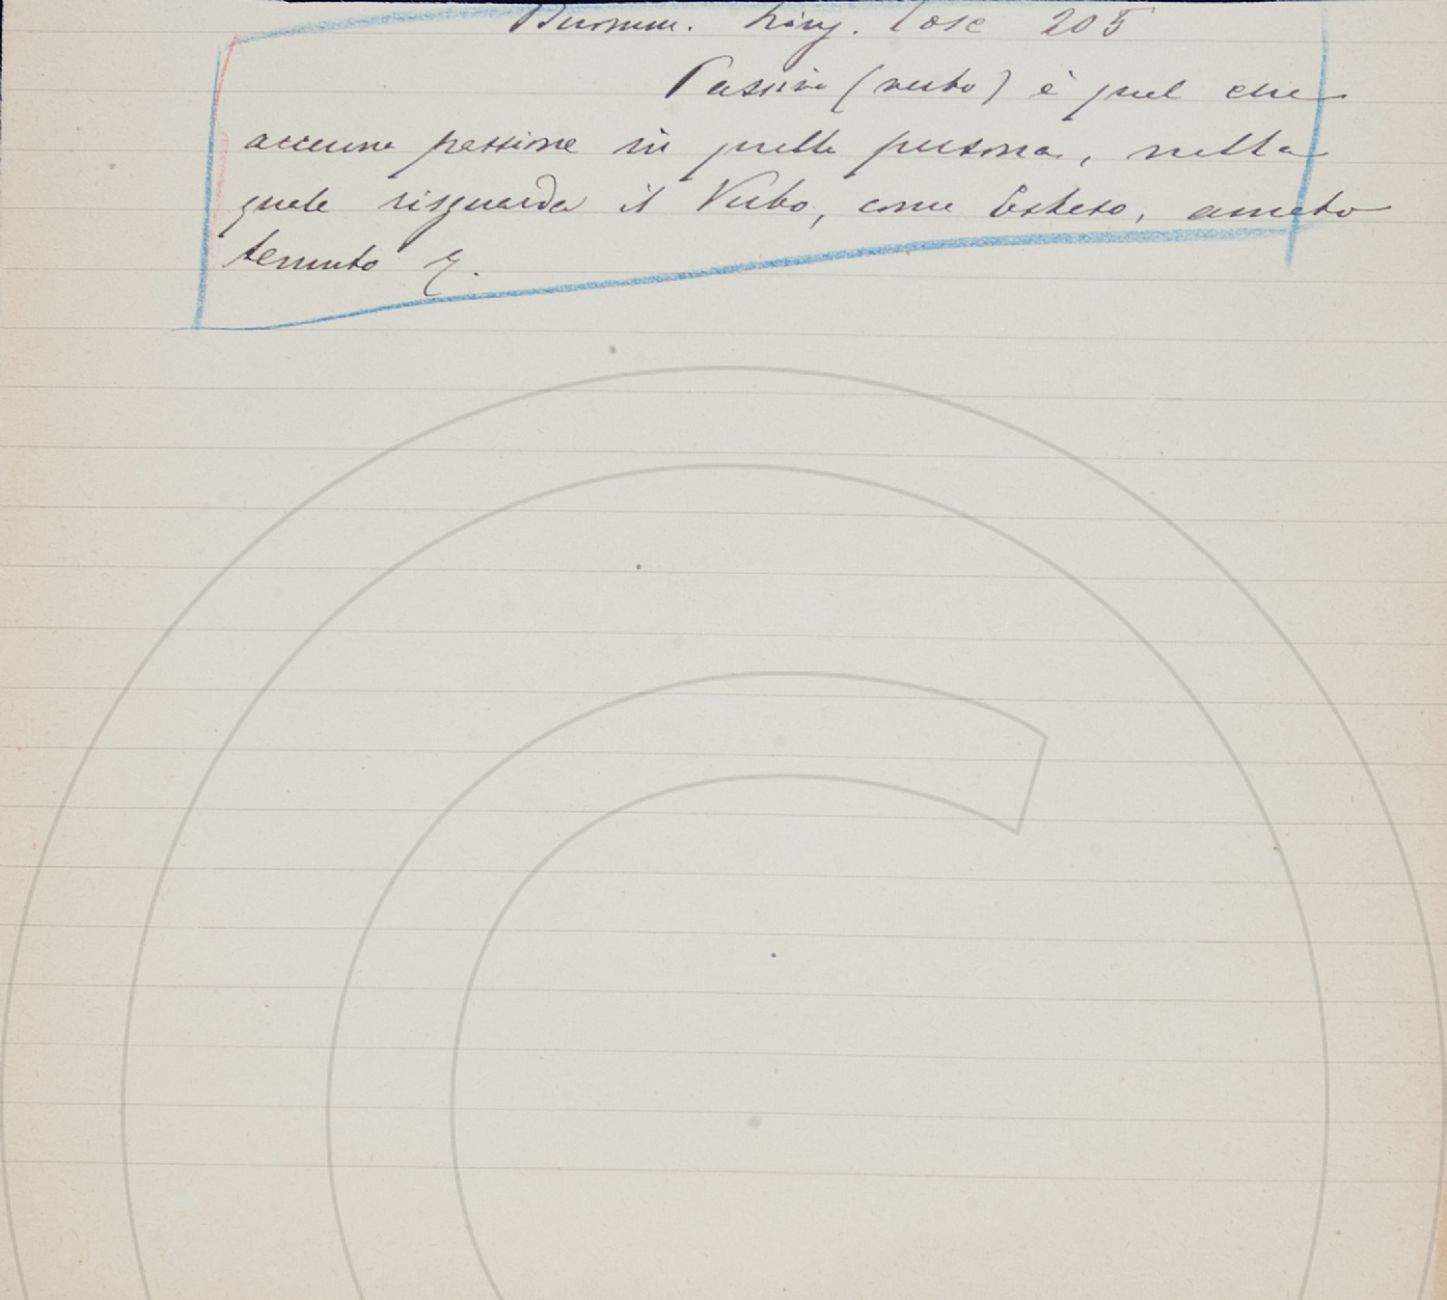 Buomm. Ling. Tosc 205
Passivo (verbo) è quel che
accenna passione in quella persona, nella
quale risguarda il Verbo, come Esteso, amato
temuto &.